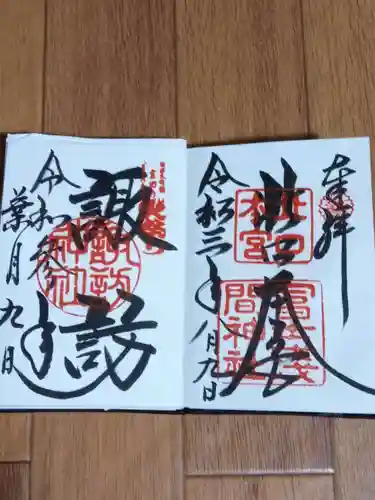 奉拝
北口本宮
冨士浅間神社
令和三年八月九日
諏訪
諏訪神社
令和参年
葉月九日